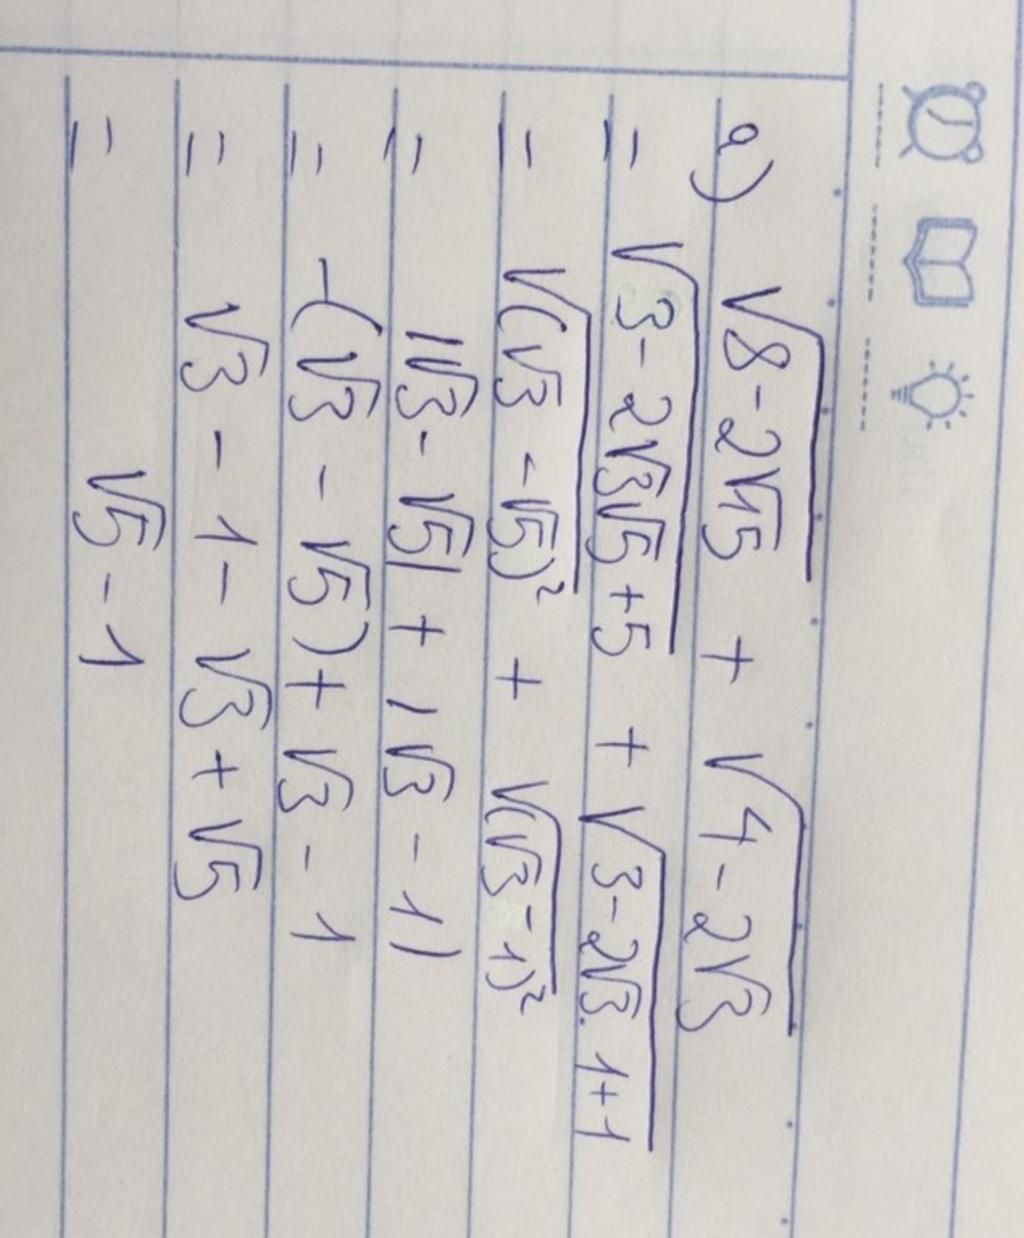 a) √(8-2√15) + √(4-2√3)
= √(3-2√3√5+5) + √(3-2√3.1+1)
= √((√3-√5)²) + √((√3-1)²)
= |√3-√5| + |√3-1|
= -(√3-√5) + √3-1
= √3-1-√3+√5
= √5-1